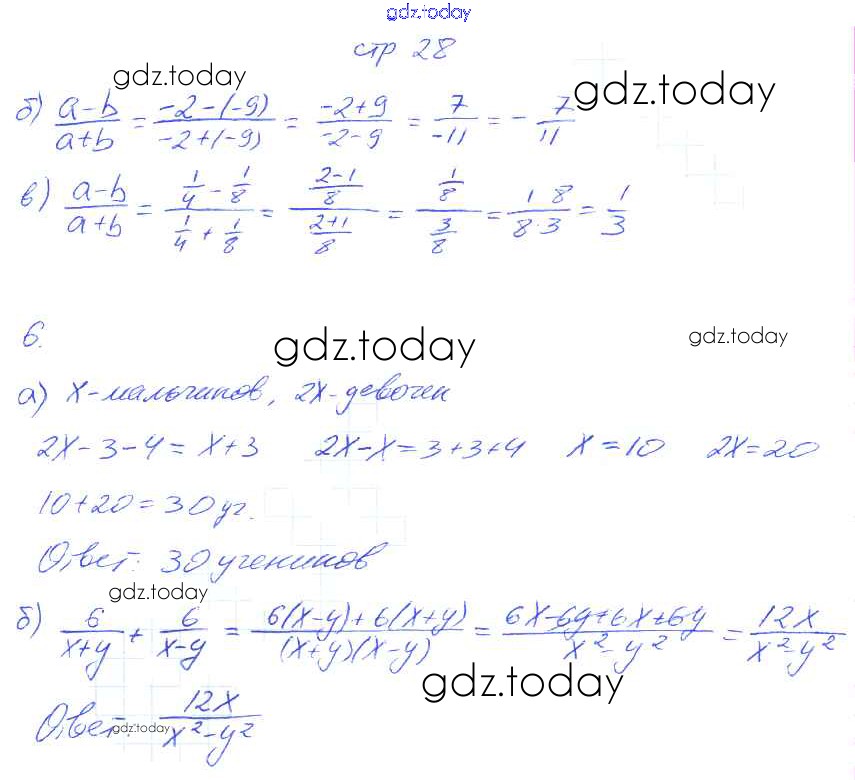 gdz.today
стр 28
gdz.today gdz.today
б) (a-b)/(a+b) = (-2-(-9))/(-2+(-9)) = (-2+9)/(-2-9) = 7/(-11) = - 7/11
в) (a-b)/(a+b) = (1/4 - 1/8)/(1/4 + 1/8) = ((2-1)/8)/((2+1)/8) = (1/8)/(3/8) = (1 8)/(8·3) = 1/3
6.
gdz.today gdz.today
а) x-мальчиков, 2x-девочек
2x-3-4=x+3 2x-x=3+3+4 x=10 2x=20
10+20=30уч.
Ответ: 30 учеников
gdz.today
б) 6/(x+y) + 6/(x-y) = (6(x-y)+6(x+y))/((x+y)(x-y)) = (6x-6y+6x+6y)/(x²-y²) = 12x/(x²-y²)
gdz.today
Ответ: 12x/(x²-y²)
gdz.today